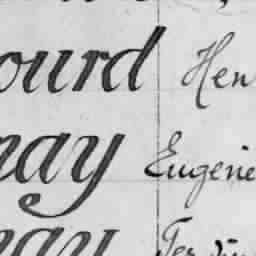 ourd Hen
nay Eugenie
nay